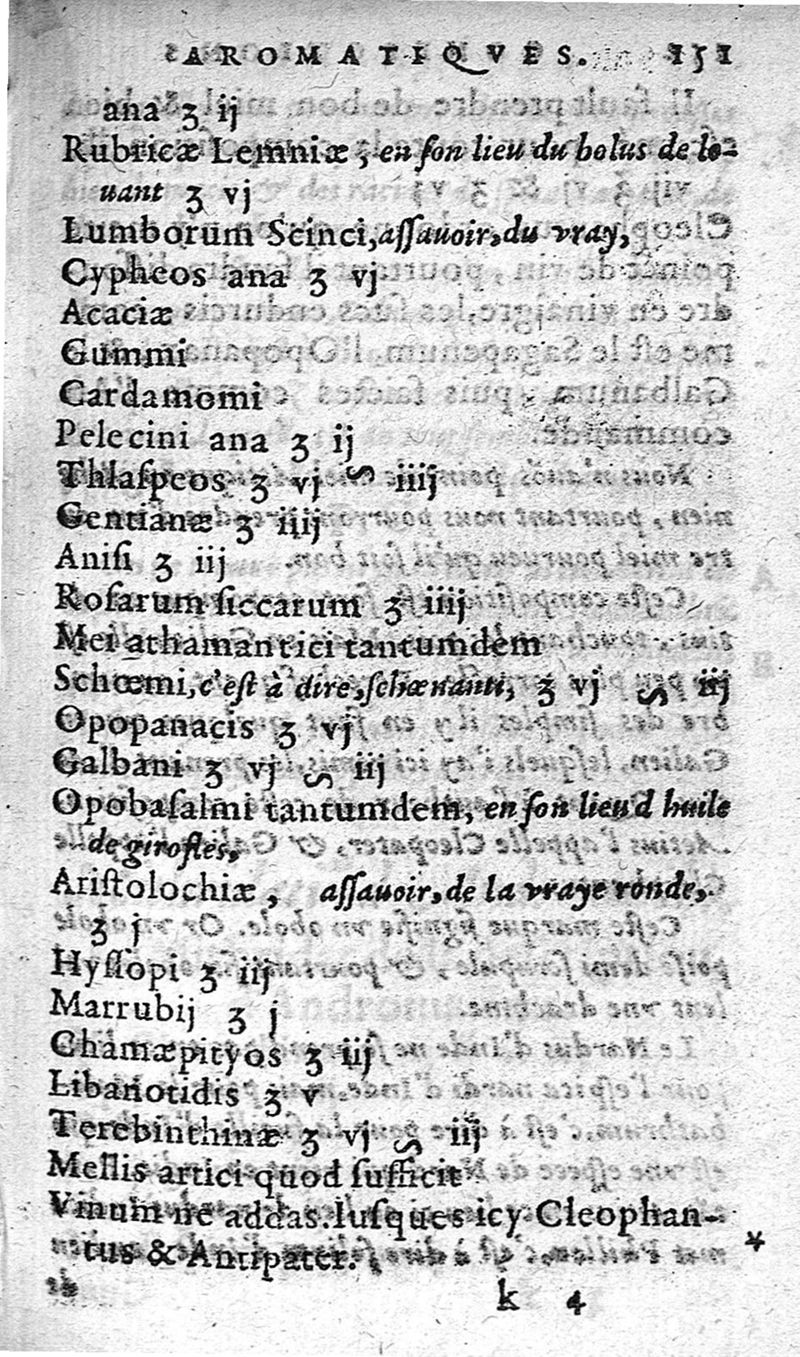 AROMATIQVES. 151
ana ʒ ij
Rubricæ Lemniæ, en ſon lieu du bolus de le-
uant ʒ vj
Lumborum Scinci, aſſauoir, du vray,
Cypheos ana ʒ vj
Acaciæ
Gummi
Cardamomi
Pelecini ana ʒ ij
Thlaſpeos ʒ vj ᔕ iiij
Gentianæ ʒ iiij
Aniſi ʒ iij
Roſarum ſiccarum ʒ iiij
Mei athamantici tantumdem
Schœmi, c'eſt à dire, ſchœnanti, ʒ vj ᔕ iij
Opopanacis ʒ vj
Galbani ʒ vj ᔕ iij
Opobaſalmi tantumdem, en ſon lieu d huile
de girofles,
Ariſtolochiæ, aſſauoir, de la vraye ronde,
ʒ j
Hyſſopi ʒ iij
Marrubij ʒ j
Chamæpityos ʒ iij
Libanotidis ʒ v
Terebinthinæ ʒ vj ᔕ iij
Mellis artici quod ſufficit
Vinum ne addas. Iuſques icy Cleophan-
tus & Antipater. *
k 4